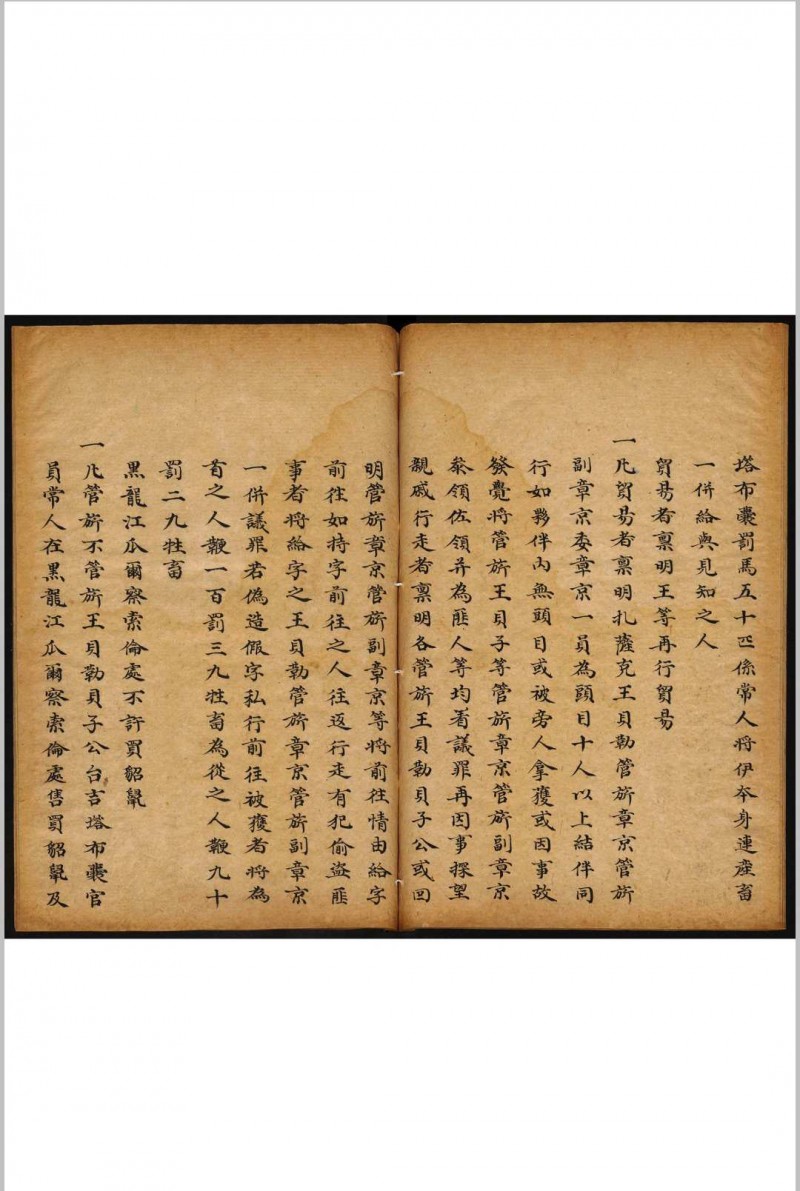 塔布囊罰馬五十匹係常人將伊夲身連産畜
一併給與見知之人
貿易者禀明王等再行貿易
一凡貿易者禀明扎薩克王貝勒管旂章京管旂
副章京委章京一員為頭目十人以上結伴同
行如夥伴內無頭目或被旁人拿獲或因事故
發覺將管旂王貝子等管旂章京管旂副章京
叅領佐領并為匪人等均看議罪再因事探望
親戚行走者禀明各管旂王貝勒貝子公或回
明管旂章京管旂副章京等將前往情由給字
前往如持字前往之人往返行走有犯偷盜匪
事者將給字之王貝勒管旂章京管旂副章京
一併議罪若偽造假字私行前往被獲者將為
首之人鞭一百罰三九牲畜為從之人鞭九十
罰二九牲畜
黑龍江瓜爾察索倫處不許買貂鼠
一凡管旂不管旂王貝勒貝子公台吉塔布囊官
員常人在黑龍江瓜爾察索倫處售買貂鼠及